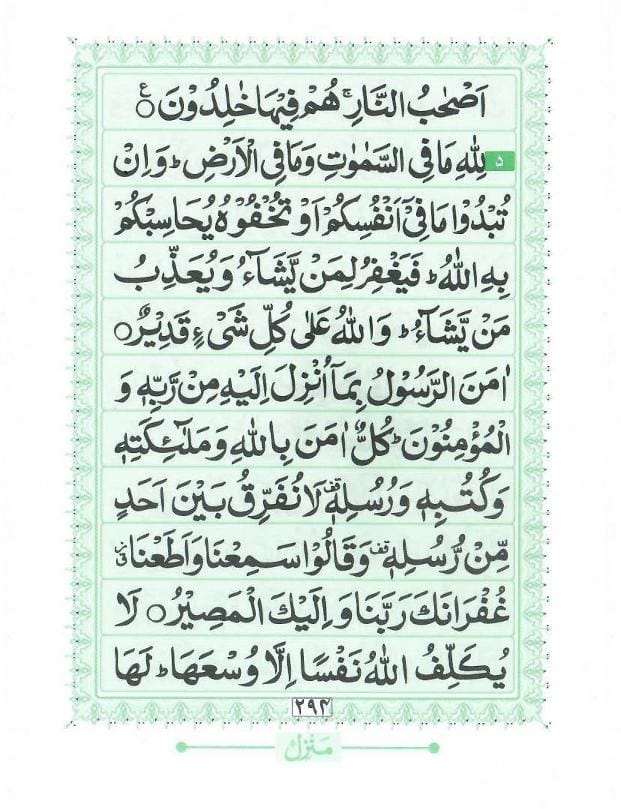 اَصْحٰبُ النَّارِ ۚ هُمْ فِيْهَا خٰلِدُوْنَ ۝ ع
۵ لِلّٰهِ مَا فِي السَّمٰوٰتِ وَمَا فِي الْاَرْضِ ؕ وَاِنْ
تُبْدُوْا مَا فِيْۤ اَنْفُسِكُمْ اَوْ تُخْفُوْهُ يُحَاسِبْكُمْ
بِهِ اللّٰهُ ؕ فَيَغْفِرُ لِمَنْ يَّشَآءُ وَيُعَذِّبُ
مَنْ يَّشَآءُ ؕ وَاللّٰهُ عَلٰى كُلِّ شَیْءٍ قَدِيْرٌ ۝
اٰمَنَ الرَّسُوْلُ بِمَاۤ اُنْزِلَ اِلَيْهِ مِنْ رَّبِّهٖ وَ
الْمُؤْمِنُوْنَ ؕ كُلٌّ اٰمَنَ بِاللّٰهِ وَمَلٰٓئِكَتِهٖ
وَكُتُبِهٖ وَرُسُلِهٖ قف لَا نُفَرِّقُ بَيْنَ اَحَدٍ
مِّنْ رُّسُلِهٖ قف وَقَالُوْا سَمِعْنَا وَاَطَعْنَا
غُفْرَانَكَ رَبَّنَا وَاِلَيْكَ الْمَصِيْرُ ۝ لَا
يُكَلِّفُ اللّٰهُ نَفْسًا اِلَّا وُسْعَهَا ؕ لَهَا
۲۹۴
مَنْزِل